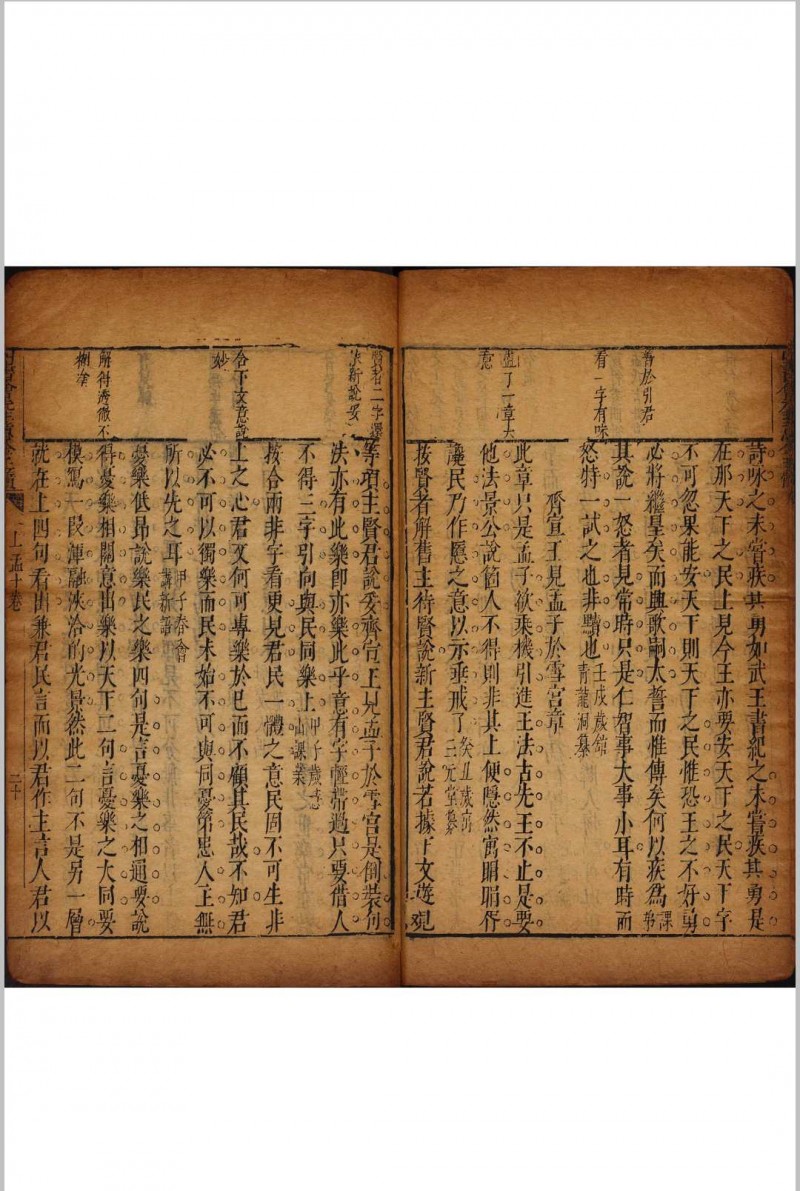 善於引君
看一字有味
盡了一章大
意
詩咏之未嘗疾其勇如武王書紀之未嘗疾其勇是
在那天下之民上見今王亦要安天下之民天下字
不可忽果能安天下則天下之民惟恐王之不好勇
必將繼皇矣而興歌嗣太誓而惟傳矣何以疾為課弟
其說一怒者見常時只是仁智事大事小耳有時而
怒特一試之也非黷也壬戌歲館青龍洞纂
齊宣王見孟子於雪宮章
此章只是孟子欲乘機引進王法古先王不止是要
他法景公說箇人不得則非其上便隱然寓睊睊胥
讒民乃作慝之意以示垂戒了癸丑歲病三元堂纂
按賢者解舊主待賢說新主賢君說若據下文遊觀
賢者二字還
決新說妥
合下文意說
妙
解得清徹不
糊塗
等項主賢君說妥齊宣王見孟子於雪宮是倒裝句
法亦有此樂即亦樂此乎意有字輕帶過只要借人
不得三字引向與民同樂上甲子歲山課業
按合兩非字看更見君民一體之意民固不可生非
上之心君又何可專樂於已而不顧其民哉不知君
必不可以獨樂而民未始不可與同憂第患人主無
所以先之耳甲子春會講新語
憂樂低昂說樂民之樂四句是言憂樂之相通要說
得憂樂相關意出樂以天下二句言憂樂之大同要
模寫一段渾融浹洽的光景然此二句不是另一層
就在上四句看出兼君民言而以君作主言人君以
上孟十卷
二十